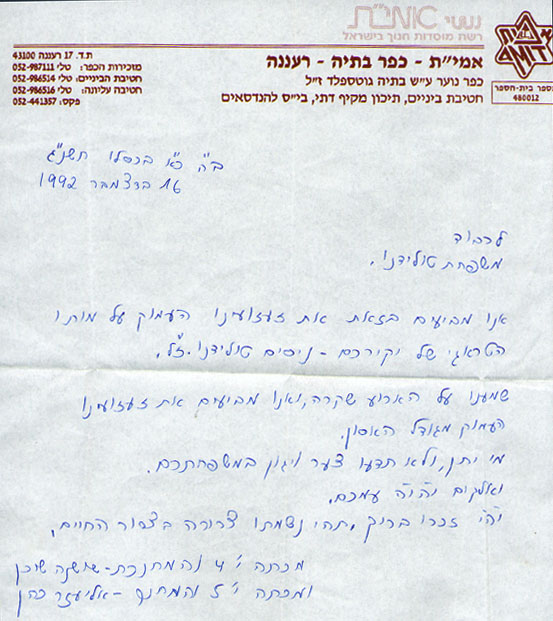 נשי אמי״ת
רשת מוסדות חנוך בישראל
אמי״ת - כפר בתיה - רעננה
כפר נוער ע״ש בתיה גוטספלד ז״ל
חטיבת ביניים, תיכון מקיף דתי, בי״ס להנדסאים
ת.ד. 17 רעננה 43100
מזכירות הכפר: טל׳ 052-987111
חטיבת הביניים: טל׳ 052-986514
חטיבה עליונה: טל׳ 052-986516
פקס: 052-441357
מספר בית-הספר
480012
ב״ה כ״א בכסלו תשנ״ג
16 בדצמבר 1992
לכבוד
משפחת טולידנו.
אנו מביעים בזאת את זעזוענו העמוק על מותו
הטראגי של יקירכם - ניסים טולידנו. ז״ל.
שמענו על הארוע שקרה, ואנו מביעים את זעזוענו
העמוק מגודל האסון.
מי יתן, ולא תדעו צער ויגון במשפחתכם.
ואלקים יהיה עמכם.
יהי זכרו ברוך, תהי נשמתו צרורה בצרור החיים.
מכתה י׳ 4 והמחנכת - שושנה
ומכתה י׳ 5 והמחנך - אליעזר כהן